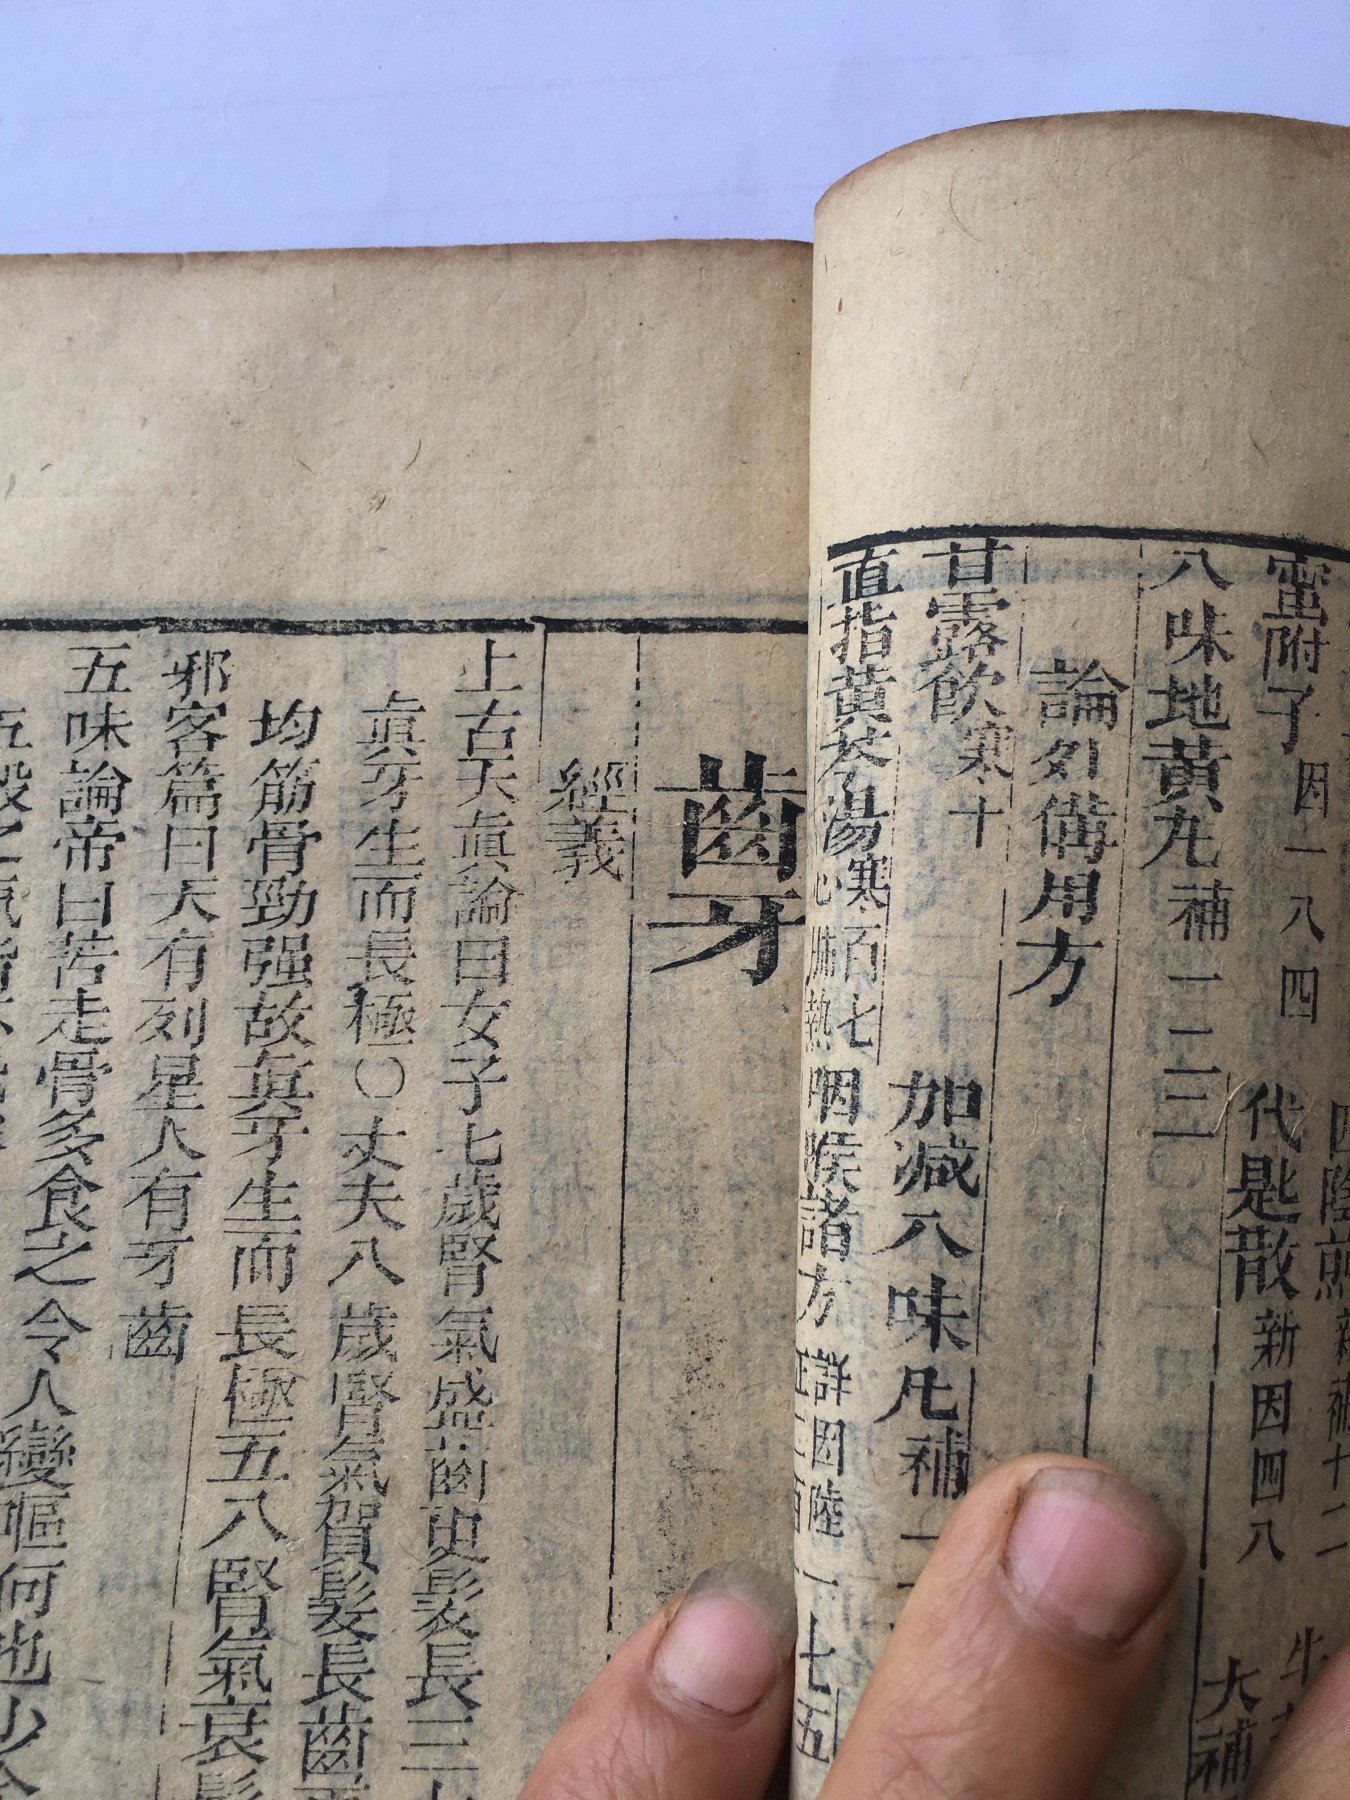 蜜附子 因一八四
代匙散 新因四八
八味地黄丸 補一二二
大補
論外備用方
甘露飲 寒十
加减八味凡 補一
直指黄芩湯 寒百七
心脾熱
咽喉諸方 詳因陸
一七五
齒牙
經義
上古天眞論曰女子七歲腎氣盛齒更髮長三七
眞牙生而長極〇丈夫八歲腎氣實髮長齒更
均筋骨勁强故眞牙生而長極五八腎氣衰髮
邪客篇曰天有列星人有牙齒
五味論帝曰苦走骨多食之令人變嘔何也少
五穀之氣皆不